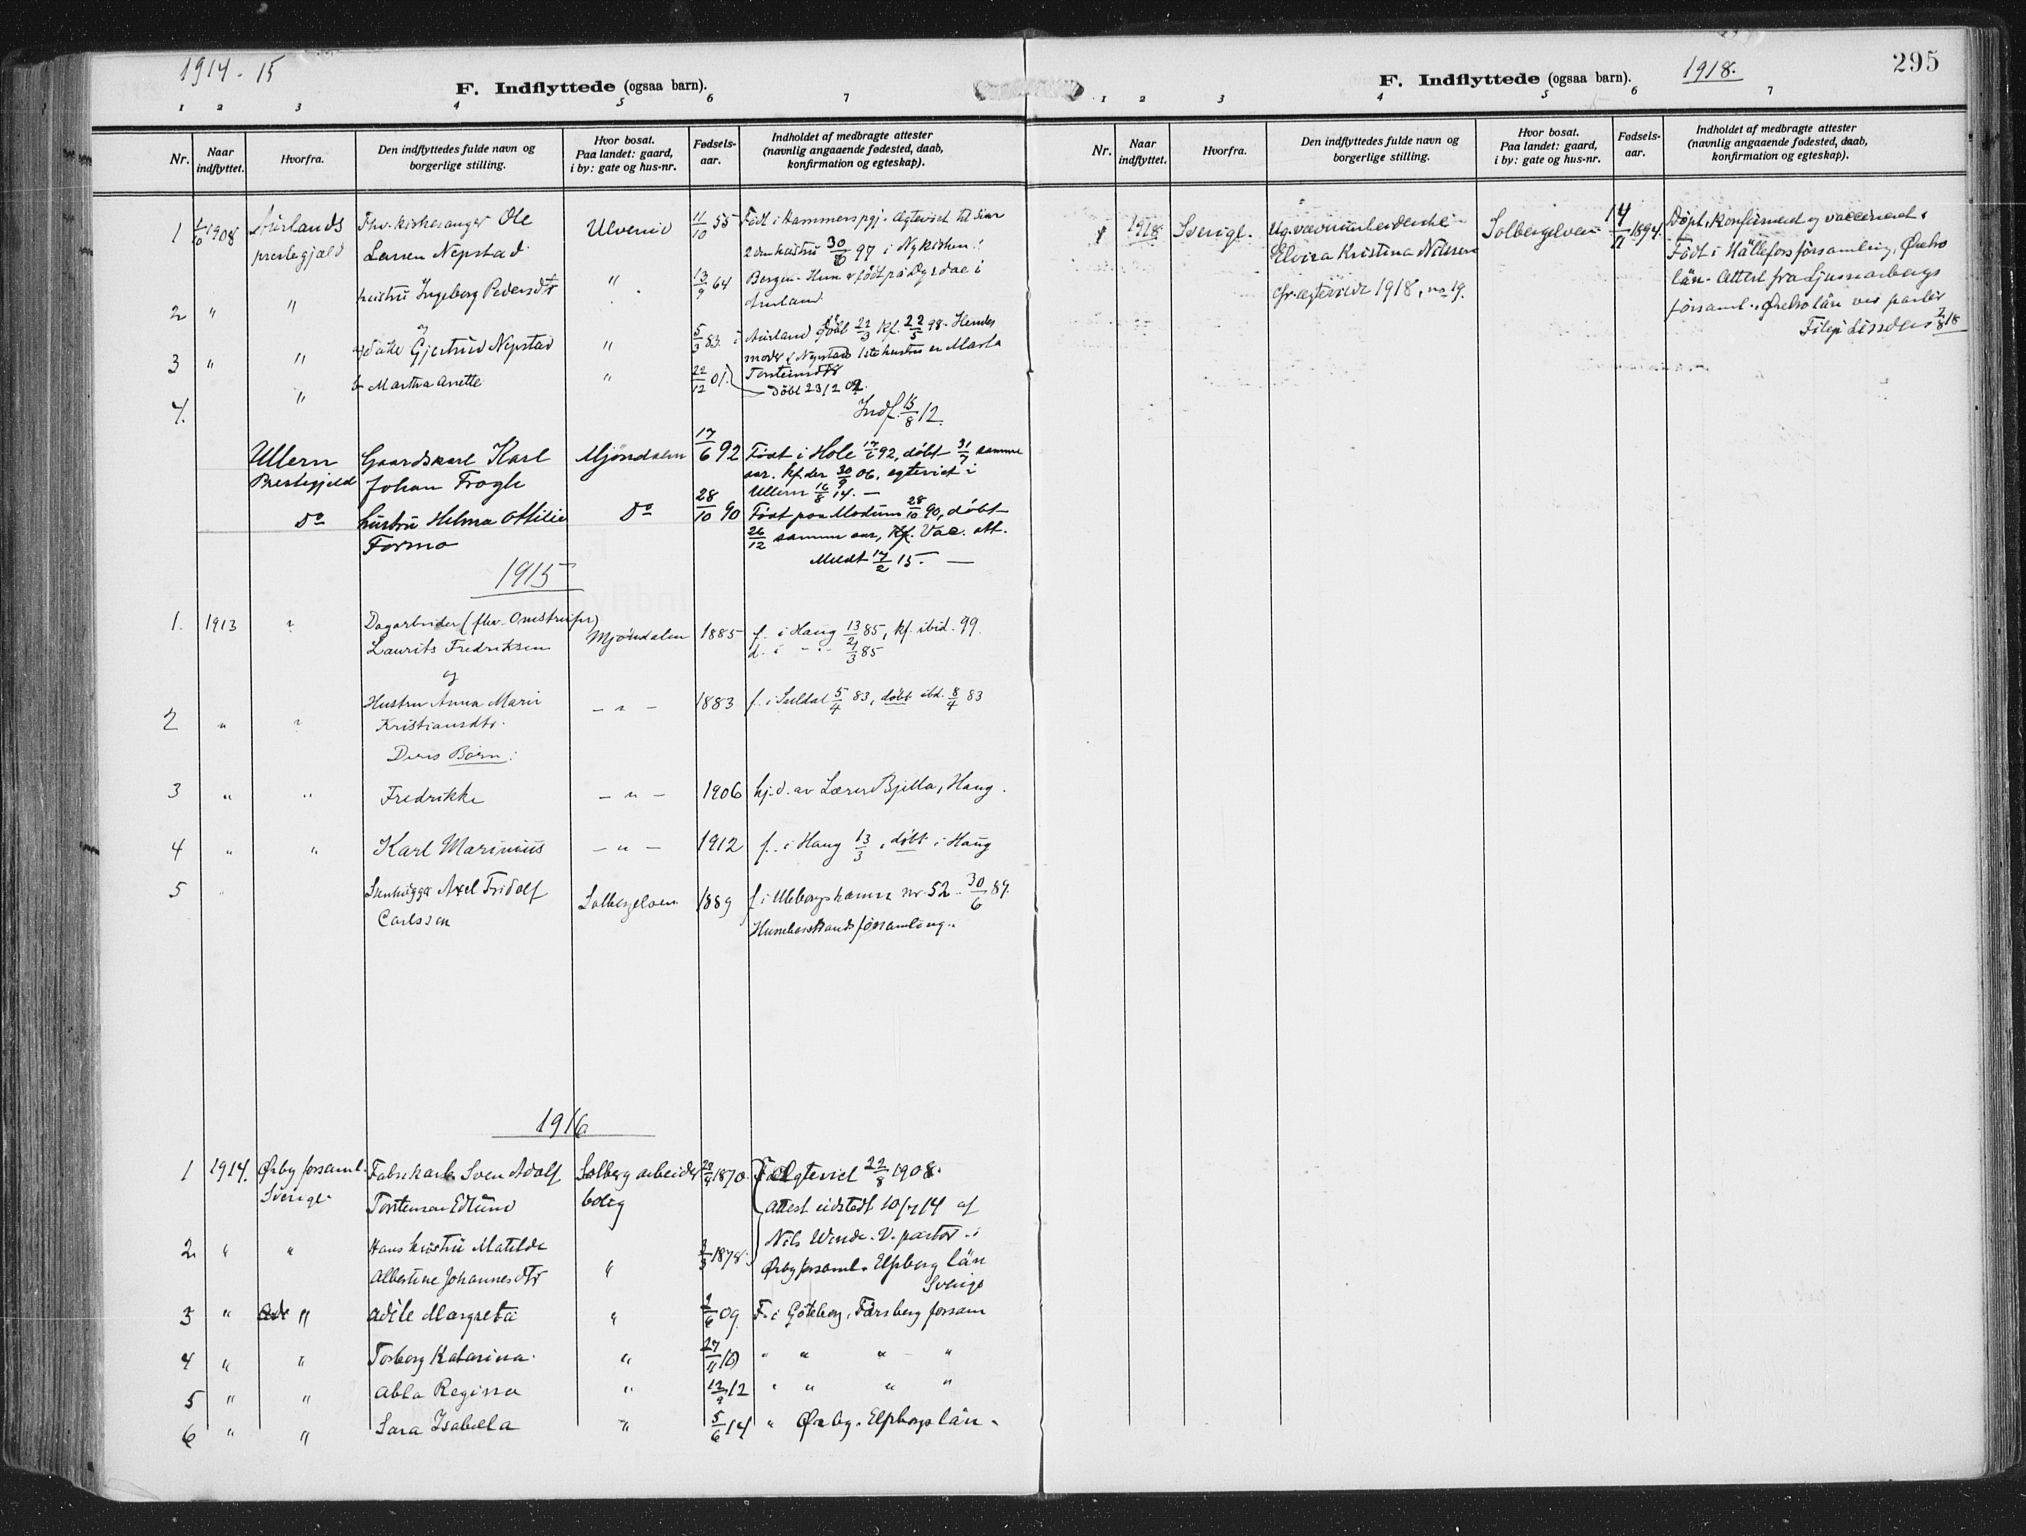 1914-15
F. Indflyttede (ogsaa barn).
1 2 3 4 5 6 7
Nr.
Naar indflyttet.
Hvorfra.
Den indflyttedes fulde navn og borgerlige stilling.
Hvor bosat. Paa landet: gaard, i by: gate og hus-nr.
Fødselsaar.
Indholdet af medbragte attester (navnlig angaaende fødested, daab, konfirmation og egteskap).
1 1/10 1908 Aurlands Fhv. kirkesanger Ole Ulverud 11/10 55 Født i Hammers pgj. Egteviet til sin
prestegjeld Larsen Nepstad 2den hustru 30/6 97 i Nykirken i
hustru Ingeborg Pedersdtr " 13/9 64 Bergen. Hun er født på Dyrdal i
2 " " Aurland.
og
datter Gjertrud Nepstad " 5/3 83 i Aurland døbt 22/3 kf. 22/5 98. Hendes
3 " " moder Nepstads 1ste hustru er Marta
b Martha Anette " 22/12 01 Torsteinsdtr
" Døbt 23/2 02.
4. Indf. 15/8 12.
Ullern Gaardskarl Karl Mjøndalen 17/6 92 Født i Hole 17/6 92, døbt 31/7 samme
Prestegjeld Johan Frogh aar. kf. der 30/9 06, egteviet i
Ullern 16/8 14. —
Do hustru Helma Ottilie Do 28/10 90 Født paa Modum 28/10 90, døbt
Formo 26/12 samme aar, Kf. Vac. att.
Meldt 17/2 15. —
1915
1. 1913 " Dagarbeider (fhv. Omstreifer) Mjøndalen 1885 f. i Haug 13/2 85, kf. ibid. 99.
Laurits Fredriksen d. i " " 21/3 85
og
Hustru Anna Marie — " — 1883 f. i Suldal 5/4 83, døbt ibd. 8/4 83
2 " " Kristiansdtr.
Deres Børn:
3 " " Fredrikke — " — 1906 hj.d. av Lærer Bjella, Haug.
4 " " Karl Marinius — " — 1912 f. i Haug 13/3, døbt i Haug
5 " Axel Fridolf Solbergelven 1889 f. i Ulebergshamn nr. 52. 30/6 89.
Carlsson Hunebostrands församling.
1916
1 1914. Ørby forsaml. Fabrikarb. Sven Adolf Solberg arbeider 1870. Egteviet 22/8 1908.
Sverige Torstenson Edlund bolig Attest utstedt 10/7 14 af
2 " " Hans hustru Matilde 1878. Nils Winde. V. pastor i
Albertine Johannesdtr " Ørby forsaml. Elfsborg län
Sverige
3 " " Adèle Margreta " 2/6 09. F. i Göteborg, forsam
4 " " Torborg Katarina. " 27/11 10 " " " "
5 " " Abla Regina " 12/9 12 " " " "
6 " " Sara Isabella " 5/6 14 " Ørby. Elfsborgs län.
1918.
295
F. Indflyttede (ogsaa barn).
1 2 3 4 5 6 7
Nr.
Naar indflyttet.
Hvorfra.
Den indflyttedes fulde navn og borgerlige stilling.
Hvor bosat. Paa landet: gaard, i by: gate og hus-nr.
Fødselsaar.
Indholdet af medbragte attester (navnlig angaaende fødested, daab, konfirmation og egteskap).
1 1918. Sverige. Ug. væveriarbeiderske Solbergelven 14/7 1894. Døpt, konfirmert og vaccinert.
Elvira Kristina Nilsson Født i Hällefors församling, Ørebro
cfr. egteviede 1918, no 19. län. Attest fra Ljusnarsbergs
församl. Ørebro län ved pastor
Filip Linders 2/8 18